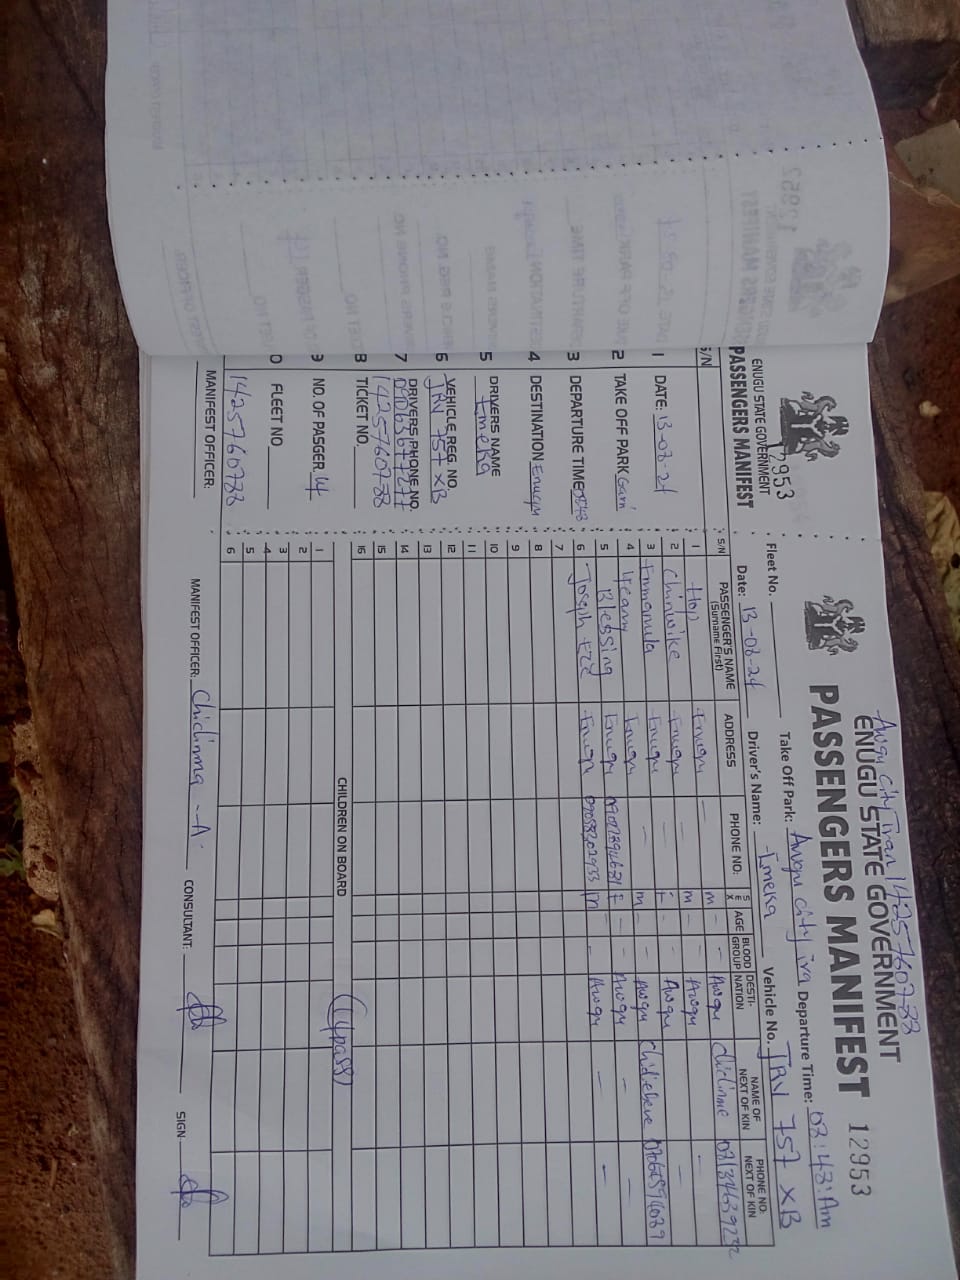 ENUGU STATE GOVERNMENT
12953
PASSENGERS MANIFEST
S/N
1 DATE: 13-08-24
2 TAKE OFF PARK
3 DEPARTURE TIME
4 DESTINATION Enugu
5 DRIVERS NAME
Emeka
6 VEHICLE REG. NO.
JRV 757 XB
7 DRIVERS PHONE NO.
8 TICKET NO
14257607-88
9 NO. OF PASGER 14
0 FLEET NO
1425760788
MANIFEST OFFICER:
Awgu City Tran 14257607-88
ENUGU STATE GOVERNMENT
PASSENGERS MANIFEST 12953
Fleet No. Take Off Park: Awgu City Departure Time: 08:43:Am
Date: 13-08-24 Driver's Name: Emeka Vehicle No. JRV 757 XB
S/N PASSENGER'S NAME (Surname First) ADDRESS PHONE NO: SEX AGE BLOOD GROUP DESTI-NATION NAME OF NEXT OF KIN PHONE NO: NEXT OF KIN
1 Hop Enugu — m - - Awgu Chidinma
2 Chinwike Enugu — m - - Awgu —
3 Emmanuela Enugu — f - - Awgu
4 Ifeany Enugu — m - - Awgu Chidiebere
5 Blessing Enugu f - - Awgu — —
6 Joseph Eze Enugu 09058302933 m - - Awgu — —
7
8
9
10
11
12
13
14
15
16
CHILDREN ON BOARD
1
2
3
4
5
6
MANIFEST OFFICER: Chidinma - A CONSULTANT: SIGN